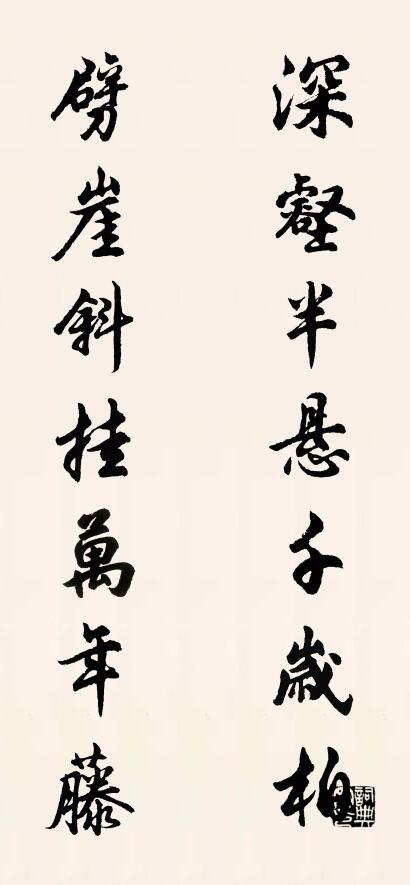 深壑半悬千歲柏
劈崖斜挂萬年藤
詞典